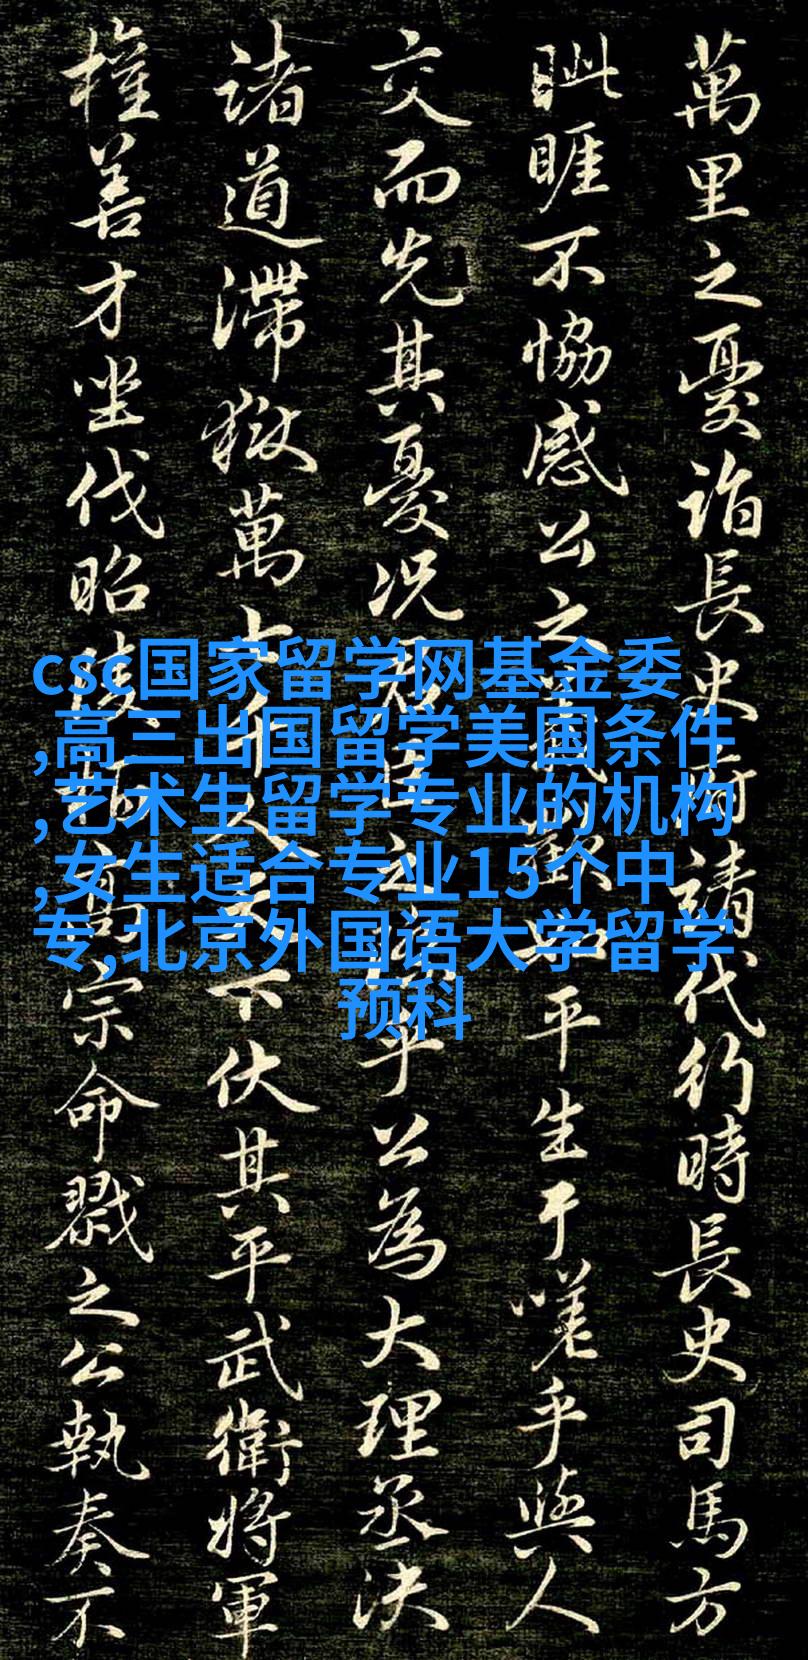 萬里之憂詣長史請代行時長史司馬方
眦睚不協感公之義歡如平生于嗟乎與人
交而先其憂況君臣之際乎公為大理丞決
諸道滯獄萬七千人天下伏其平武衛將軍
權善才坐伐昭陵柏高宗命戮之公執奏不
csc国家留学网基金委
,高三出国留学美国条件
,艺术生留学专业的机构
,女生适合专业15个中
专,北京外国语大学留学
预科